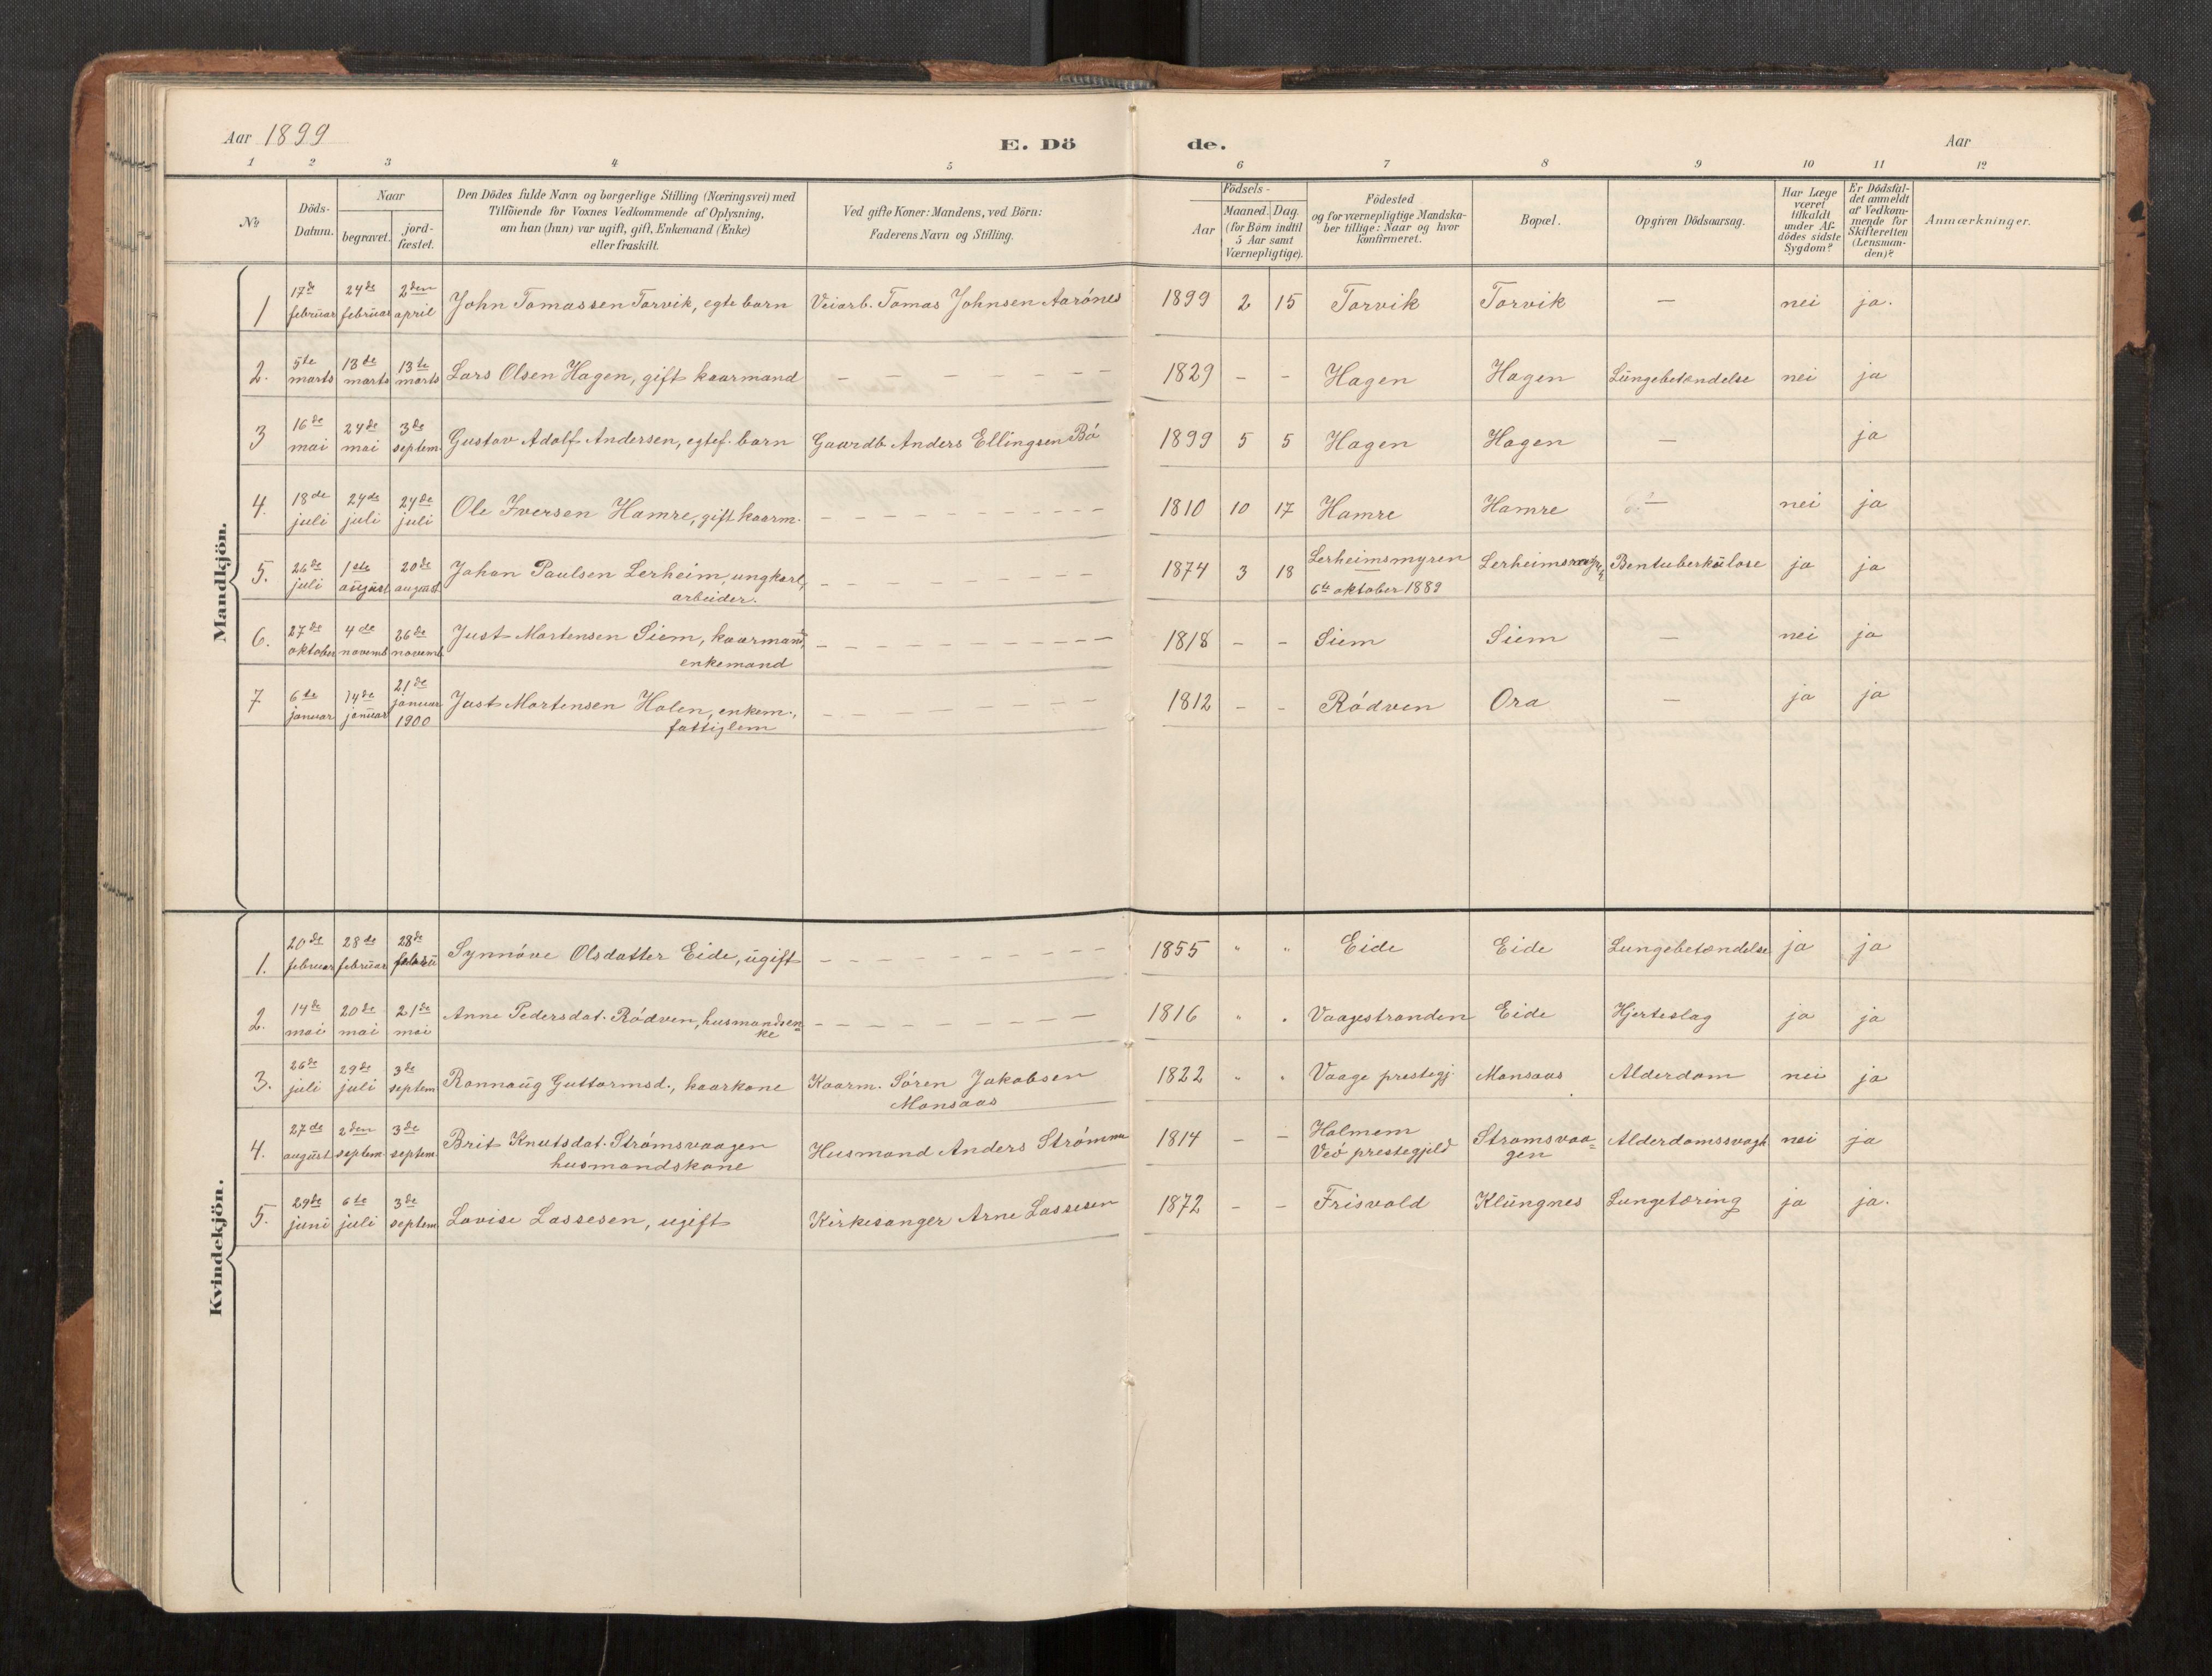 Aar 1899
E. Dö
de.
Aar
1 2 3 4 5 6 7 8 9 10 11 12
№
Döds-
Datum.
Naar
begravet.
jord-
fæstet.
Den Dödes fulde Navn og borgerlige Stilling (Næringsvei) med
Tilföiende for Voxnes Vedkommende af Oplysning,
om han (hun) var ugift, gift, Enkemand (Enke)
eller fraskilt.
Ved gifte Koner: Mandens, ved Börn:
Faderens Navn og Stilling.
Födsels-
Aar
Maaned. Dag.
(for Börn indtil
5 Aar samt
Værnepligtige).
Födested
og for værnepligtige Mandska-
ber tillige: Naar og hvor
konfirmeret.
Bopæl.
Opgiven Dödsaarsag.
Har Læge
været
tilkaldt
under Af-
dödes sidste
Sygdom?
Er Dödsfal-
det anmeldt
af Vedkom-
mende for
Skifteretten
(Lensman-
den)?
Anmærkninger.
Mandkjön.
1 17de februar 24de februar 2den april John Tomassen Torvik, egte barn Veiarb. Tomas Johnsen Aarónes 1899 2 15 Torvik Torvik — nei ja.
2. 5te marts 13de marts 13te marts Lars Olsen Hagen, gift kaarmand - - - - - - - - 1829 - - Hagen Hagen Lungebetændelse nei ja
3 16de mai 24de mai 3de septem. Gustav Adolf Andersen, egtef. barn Gaardb. Anders Ellingsen Bó 1899 5 5 Hagen Hagen — ja
4. 18de juli 24de juli 24de juli Ole Iversen Hamre, gift kaarm. - - - - - - - - 1810 10 17 Hamre Hamre — nei ja
5. 26de juli 1ste august 20de august Johan Paulsen Lerheim, ungkarl, - - - - - - - - 1874 3 18 Lerheimsmyren Bentuberkulose ja ja
arbeider. 6te oktober 1889
6. 27de oktober 4de novemb. 26de novemb. Just Mortensen Siem, kaarmand, - - - - - - - - 1818 - - Siem Siem — nei ja
enkemand
7 6te januar 14de januar 21de januar 1900 Just Mortensen Holen, enkem., - - - - - - - - 1812 - - Ródven Ora — ja ja
fattiglem
Kvindekjön.
1. 20de februar 28de februar 28de Synnóve Olsdatter Eide, ugift - - - - - - - - 1855 " " Eide Eide Lungebetændelse ja ja
2. 14de mai 20de mai 21de mai Anne Pedersdat. Ródven, husmandsen- - - - - - - - - 1816 " " Vaagestranden Eide Hjerteslag ja ja
ke
3. 26de juli 29de juli 3de septem Ronnaug Guttormsd., kaarkone Kaarm. Sóren Jakobsen 1822 " " Vaage prestegj. Monsaas Alderdom nei ja
Monsaas
4. 27de august 2den septem. 3de septem. Brit Knutsdat. Strómsvaagen Husmand Anders Strómmen 1814 - - Holmem Stromsvaa- Alderdomssvagh nei ja
husmandskone Veó prestegjeld gen
5. 29de juni 6te juli 3de septem Lovise Lassesen, ugift Kirkesanger Arne Lassesen 1872 - - Frisvold Klungnes Lungetæring ja ja.